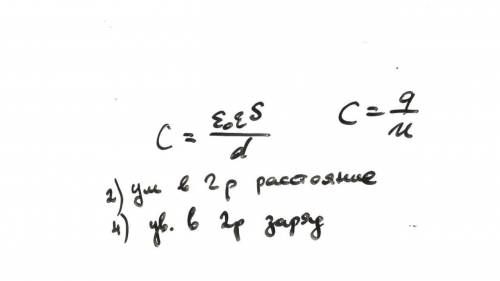 C = ε₀εS / d    C = q / u
2) ум в 2р расстояние
4) ув. в 2р заряд